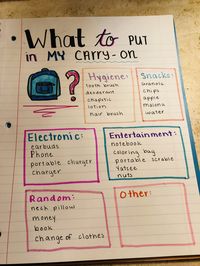 What to PUT
in MY CARRY-ON
?
Hygiene:
tooth brush
deoderant
chapstic
lotion
hair brush
Snacks:
Granola
chips
apple
water
Electronic:
earbuds
Phone
portable charger
charger
Entertainment:
notebook
coloring bag
portable scrable
nuts
Random:
neck pillow
money
book
change of clothes
Other: